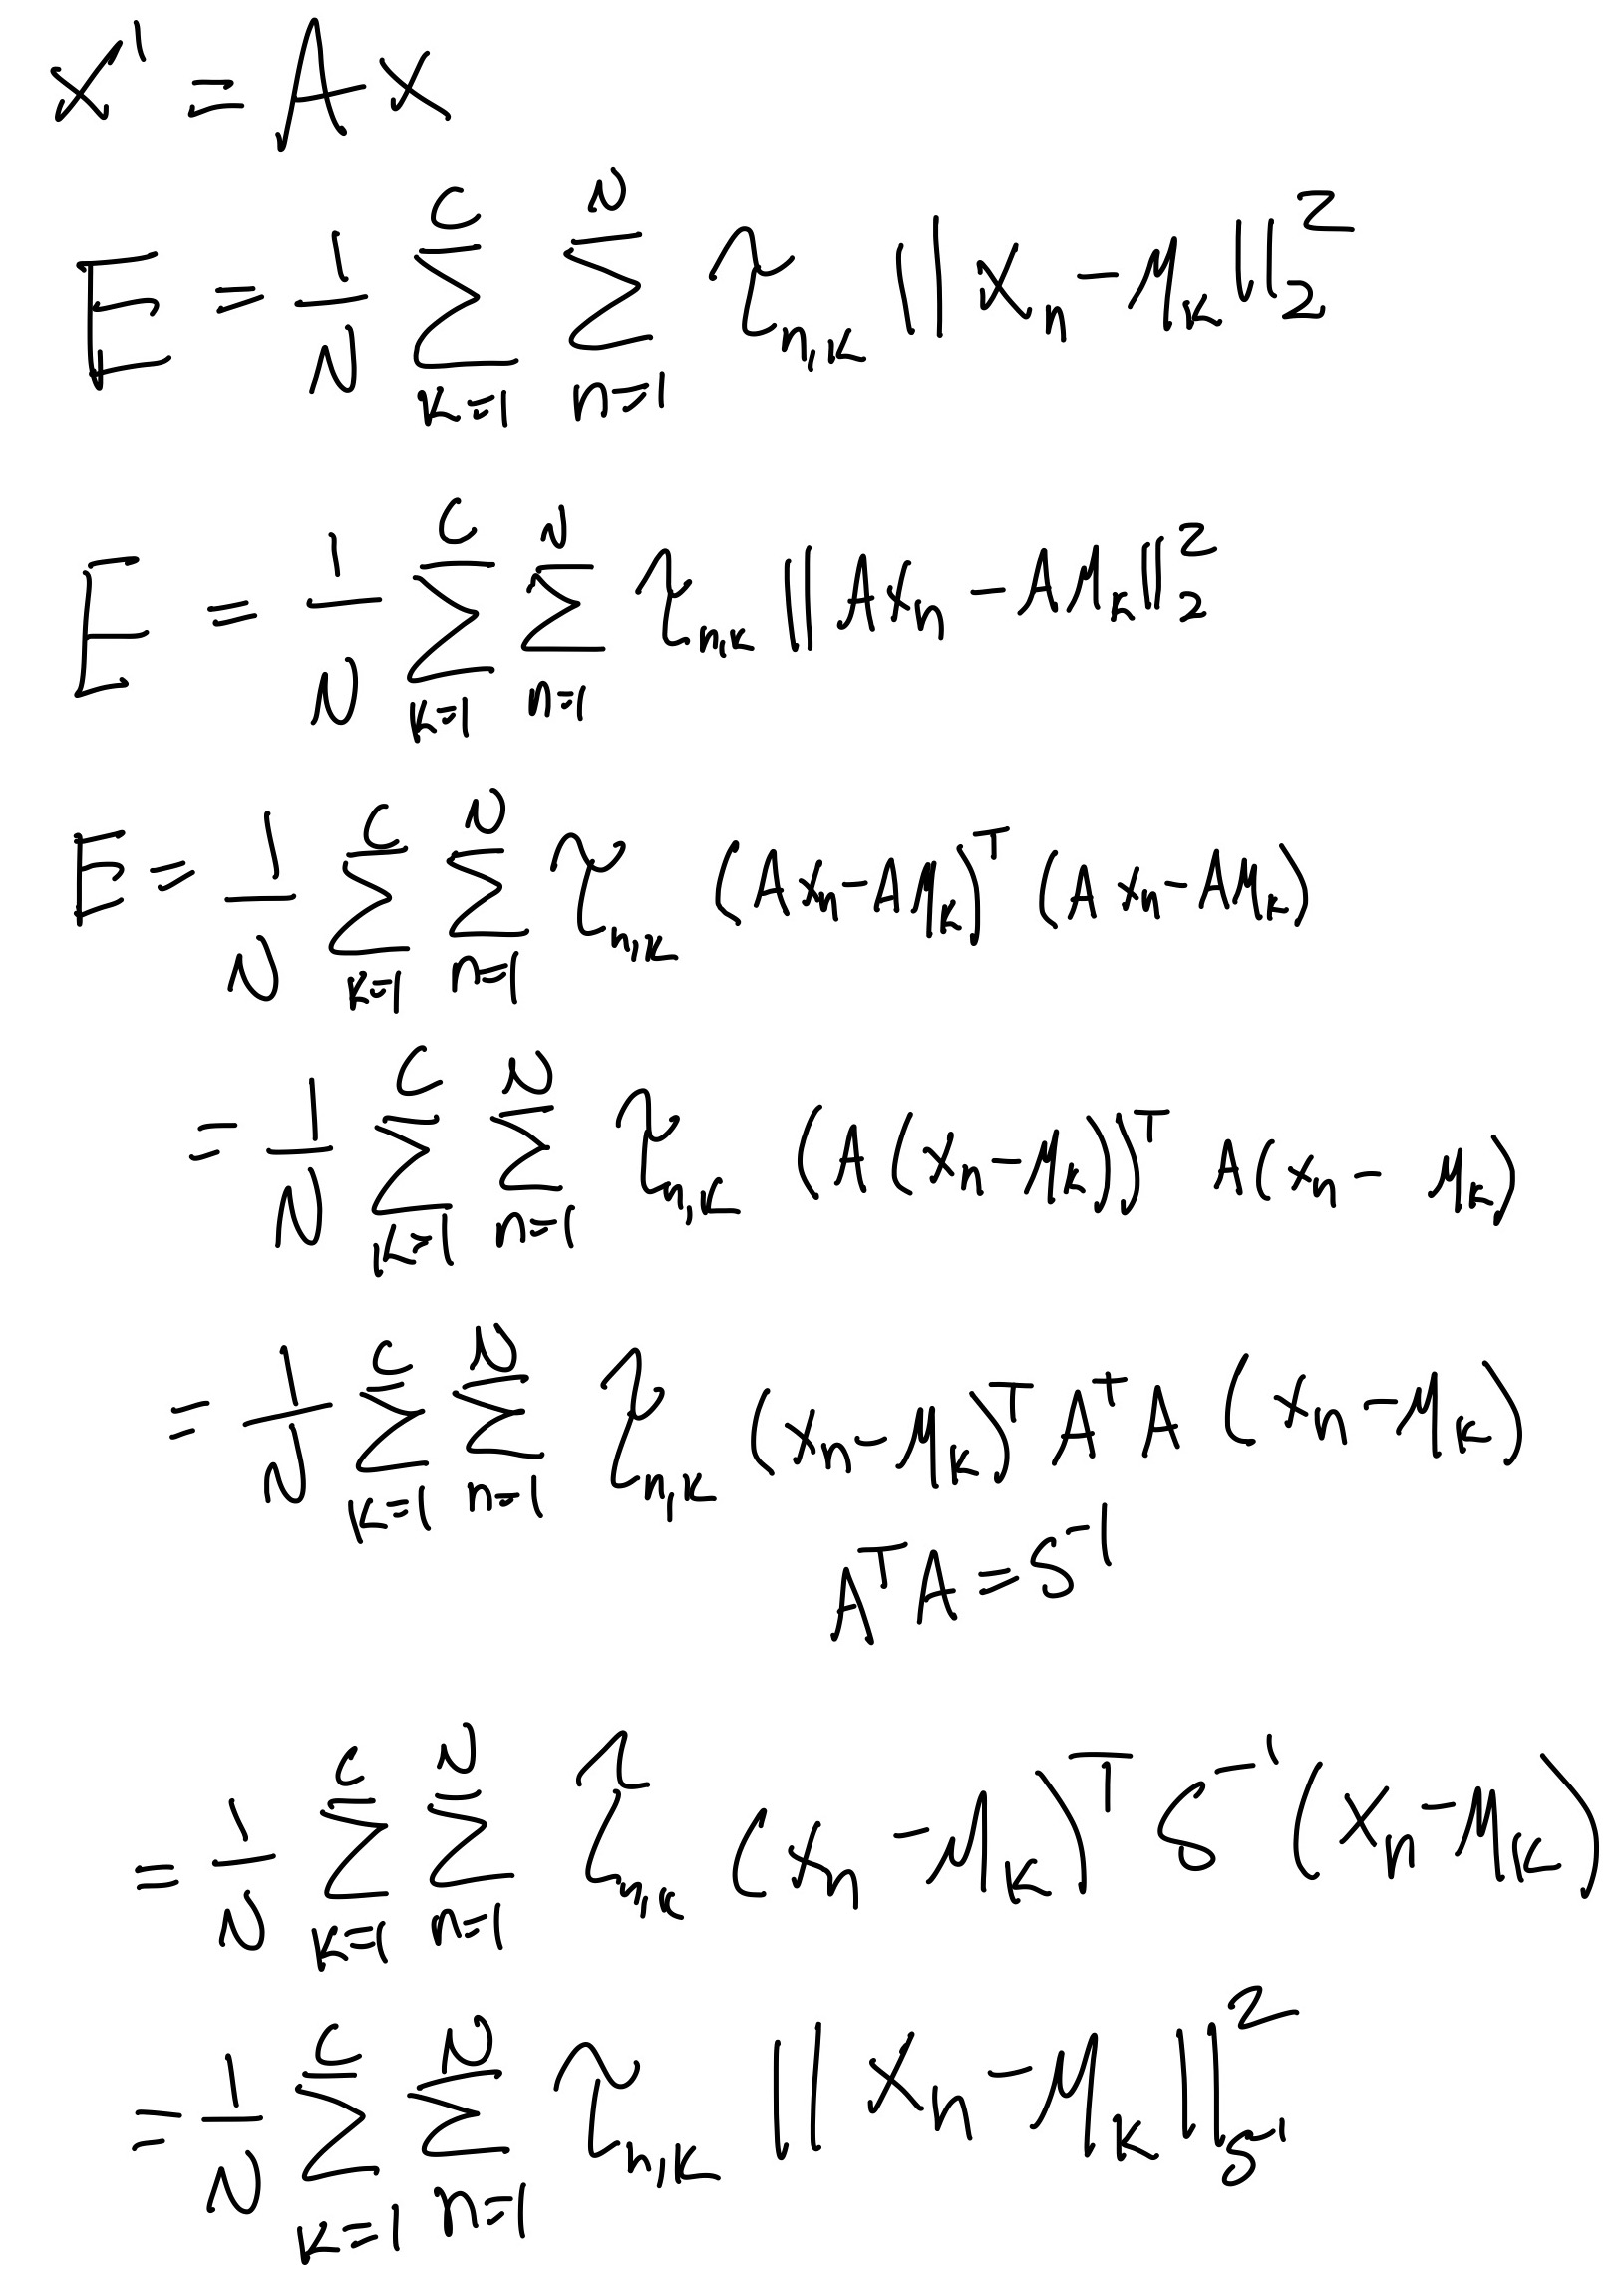 x' = Ax
E = \frac{1}{N} \sum_{k=1}^{C} \sum_{n=1}^{N} r_{n,k} \| x_n - \mu_k \|_2^2
E = \frac{1}{N} \sum_{k=1}^{C} \sum_{n=1}^{N} r_{n,k} \| Ax_n - A\mu_k \|_2^2
E = \frac{1}{N} \sum_{k=1}^{C} \sum_{n=1}^{N} r_{n,k} (Ax_n - A\mu_k)^T (Ax_n - A\mu_k)
= \frac{1}{N} \sum_{k=1}^{C} \sum_{n=1}^{N} r_{n,k} (A(x_n - \mu_k))^T A(x_n - \mu_k)
= \frac{1}{N} \sum_{k=1}^{C} \sum_{n=1}^{N} r_{n,k} (x_n - \mu_k)^T A^T A (x_n - \mu_k)
A^T A = S^{-1}
= \frac{1}{N} \sum_{k=1}^{C} \sum_{n=1}^{N} r_{n,k} (x_n - \mu_k)^T S^{-1} (x_n - \mu_k)
= \frac{1}{N} \sum_{k=1}^{C} \sum_{n=1}^{N} r_{n,k} \| x_n - \mu_k \|_{S^{-1}}^2